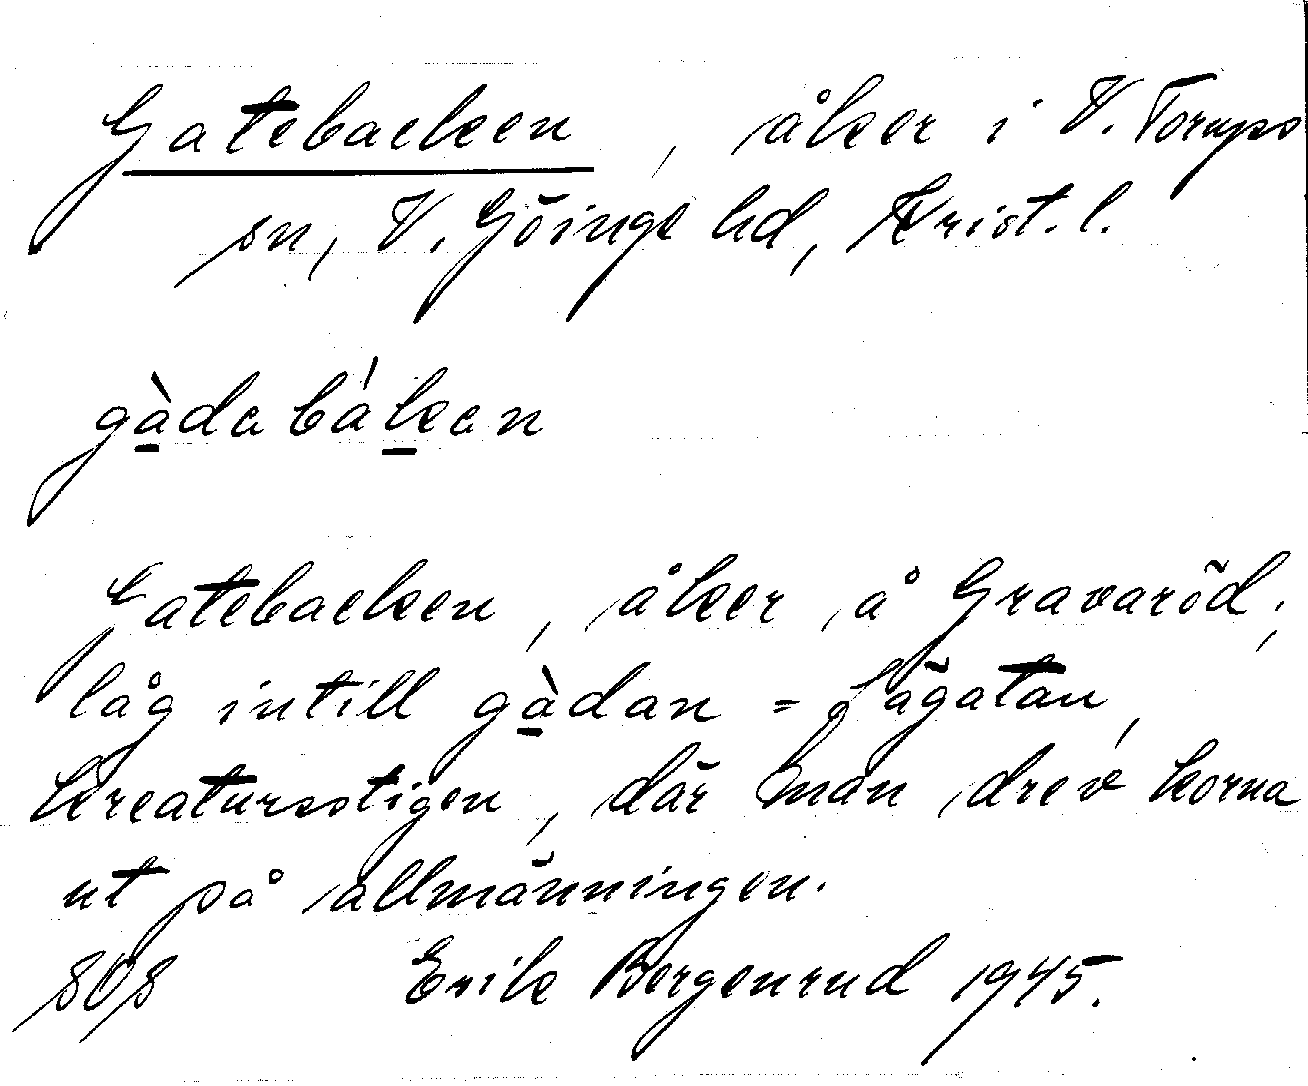 Gatebacken, åker i V. Torups
sn, V. Göinge hd, Krist. l.
gàdabákan
Gatebacken, åker å Gravaröd;
låg intill gàdan = fägatan,
kreatursstigen, där man drev korna
ut på allmänningen.
808 Erik Bergenrud 1945.